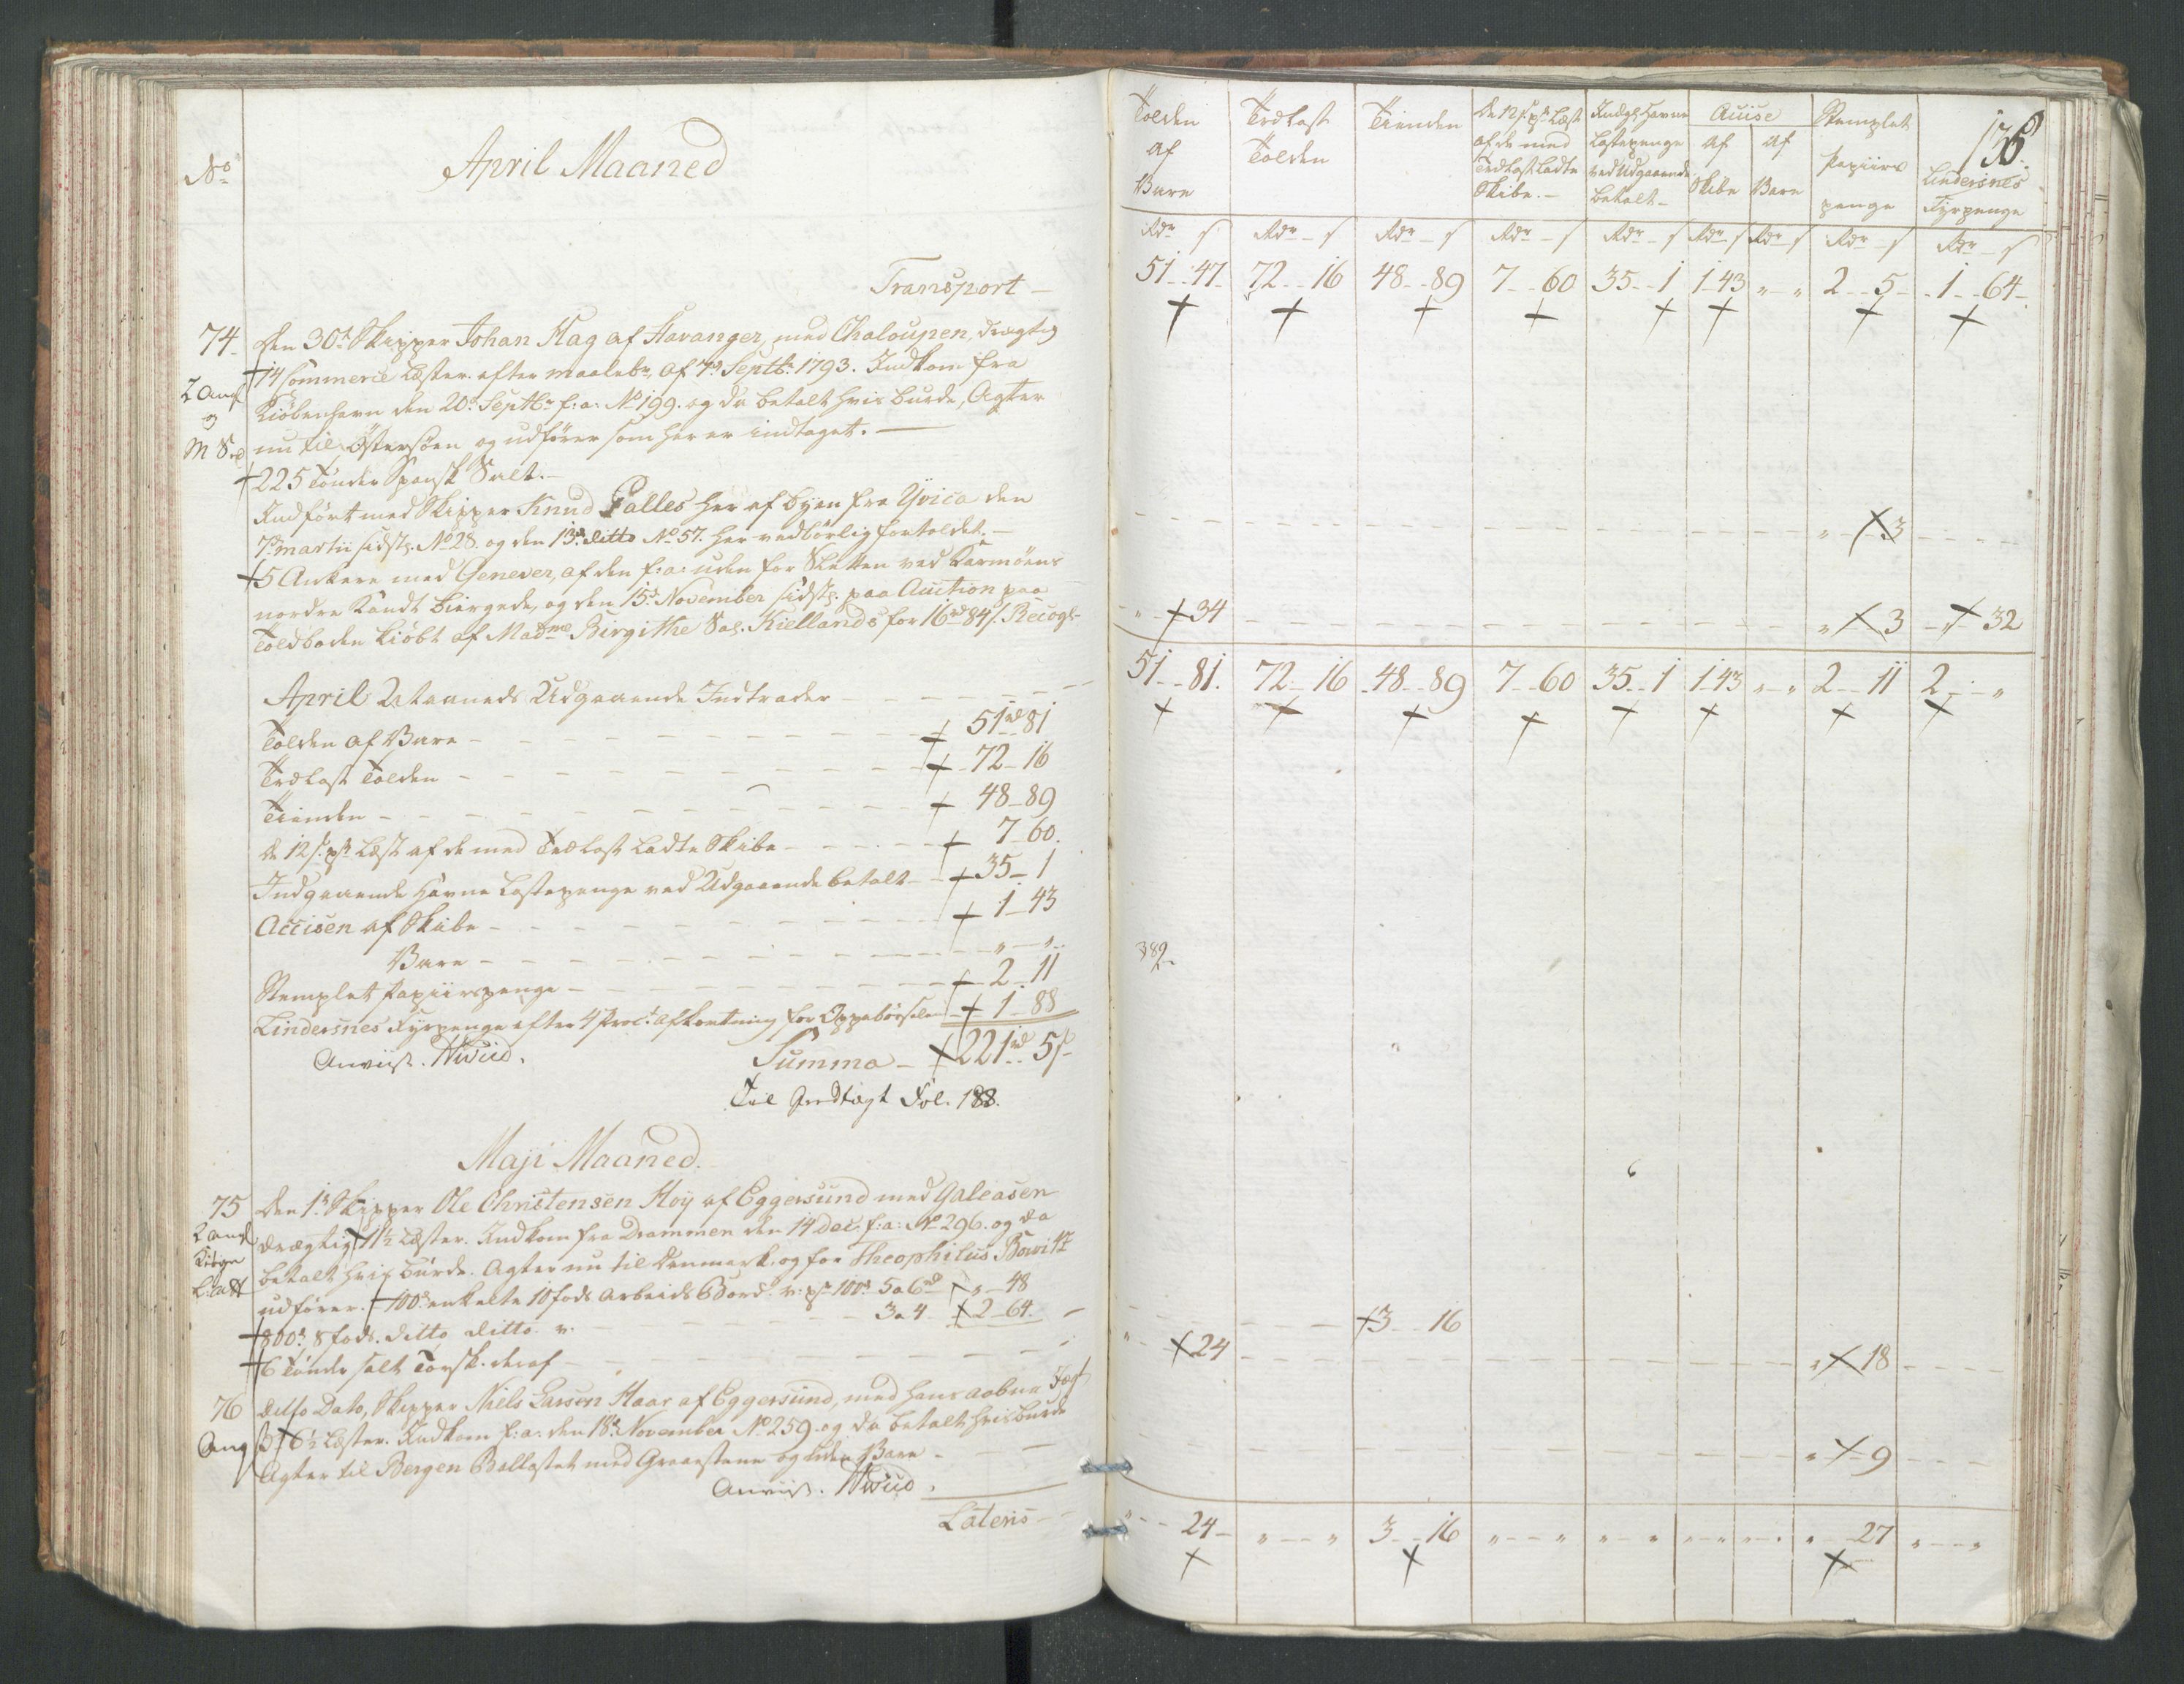 No
April Maaned
Transport
74. den 30te Skipper Johan Hag af Stavanger, med Chaloupen, drægtig
14 Commerce Læster efter maalebr. af 7de Septbr. 1793. Indkom fra
Kiöbenhavn den 20de Septbr f: a: No 199. og da betalt hvis burde, Agter
nu til Östersöen og udförer som her er indtaget.
225 Tönder Spansk Salt.
Indfört med Skipper Knud Palles her af byen fra Yvica den
7de martii sidstl. No 28. og den 13de ditto No 57. her vedbörlig fortoldet.
5 Ankere med Genever, af den f: a: uden for Sletten ved Karmöens
nordre Kandt biergede, og den 15de November sidstl. paa Auction paa
Toldboden kiöbt af Madme Birgithe Sal. Kiellands for 16rd 84s. Recogn
April Maaneds Udgaaende Indtrader
Tolden af Vare 51rd 81
Trælast Tolden 72 - 16
Tienden 48 - 89
de 12 s. pr Læst af de med Trælast ladte Skibe 7 - 60.
Indgaaende Havne Lastepenge ved Udgaaende betalt 35 - 1
Accisen af Skibe 1 - 43
Vare " - "
Stemplet Papiirspenge 2 - 11
Lindersnes Fyrpenge efter 4 Proct. afkortning for Oppebörselen 1 - 88
Summa - 221rd 5s
Til Fol. 188.
Maji Maaned.
75 den 1te Skipper Ole Christensen Hoy af Eggersund med Galeasen
drægtig 11 1/2 Læster. Indkom fra Drammen den 14 Dec: f: a: No 296. og da
betalt hvis burde. Agter nu til Denmark, og for Theophilus Bowitz
udförer. 100de enkelte 10 fods Arbeids Bord. v: pr 100de 5 a 6rd " - 48
800de 8 fods. ditto ditto v. 3 a 4 2 - 64.
6 Tönder salt Torsk. deraf
76 Ditto Dato, Skipper Niels Larsen Haar af Eggersund, med hans aabne Jægt
6 1/2 Læster. Indkom f: a: den 18de November No 259. og da betalt hvis burde
Agter til Bergen Ballastet med Graasteene og uden Vare
Lateris
Tolden af Vare | Trælast Tolden | Tienden | de 12 s. pr Læst af de med Trælast ladte Skibe. | Indgl. Havne Lastepenge ved Udgaaende betalt | Accise af Skibe | af Vare | Stemplet Papiirs penge | Lindersnes Fyrpenge
Rdr s | Rdr s | Rdr s | Rdr s | Rdr s | Rdr s | Rdr s | Rdr s | Rdr s
51 - 47 | 72 - 16 | 48 - 89 | 7 - 60 | 35 - 1 | 1 43 | " " | 2 - 5 | 1 - 64
" 3
" 34 " 3 " 32
51 - 81. | 72 - 16 | 48 - 89 | 7 - 60 | 35 - 1 | 1 43 | " " | 2 - 11 | 2 - "
382
3 - 16
" 24 " 18
" 9
" 24 | " " | 3 - 16 | " " | " " | " " | " " | " 27 | " "